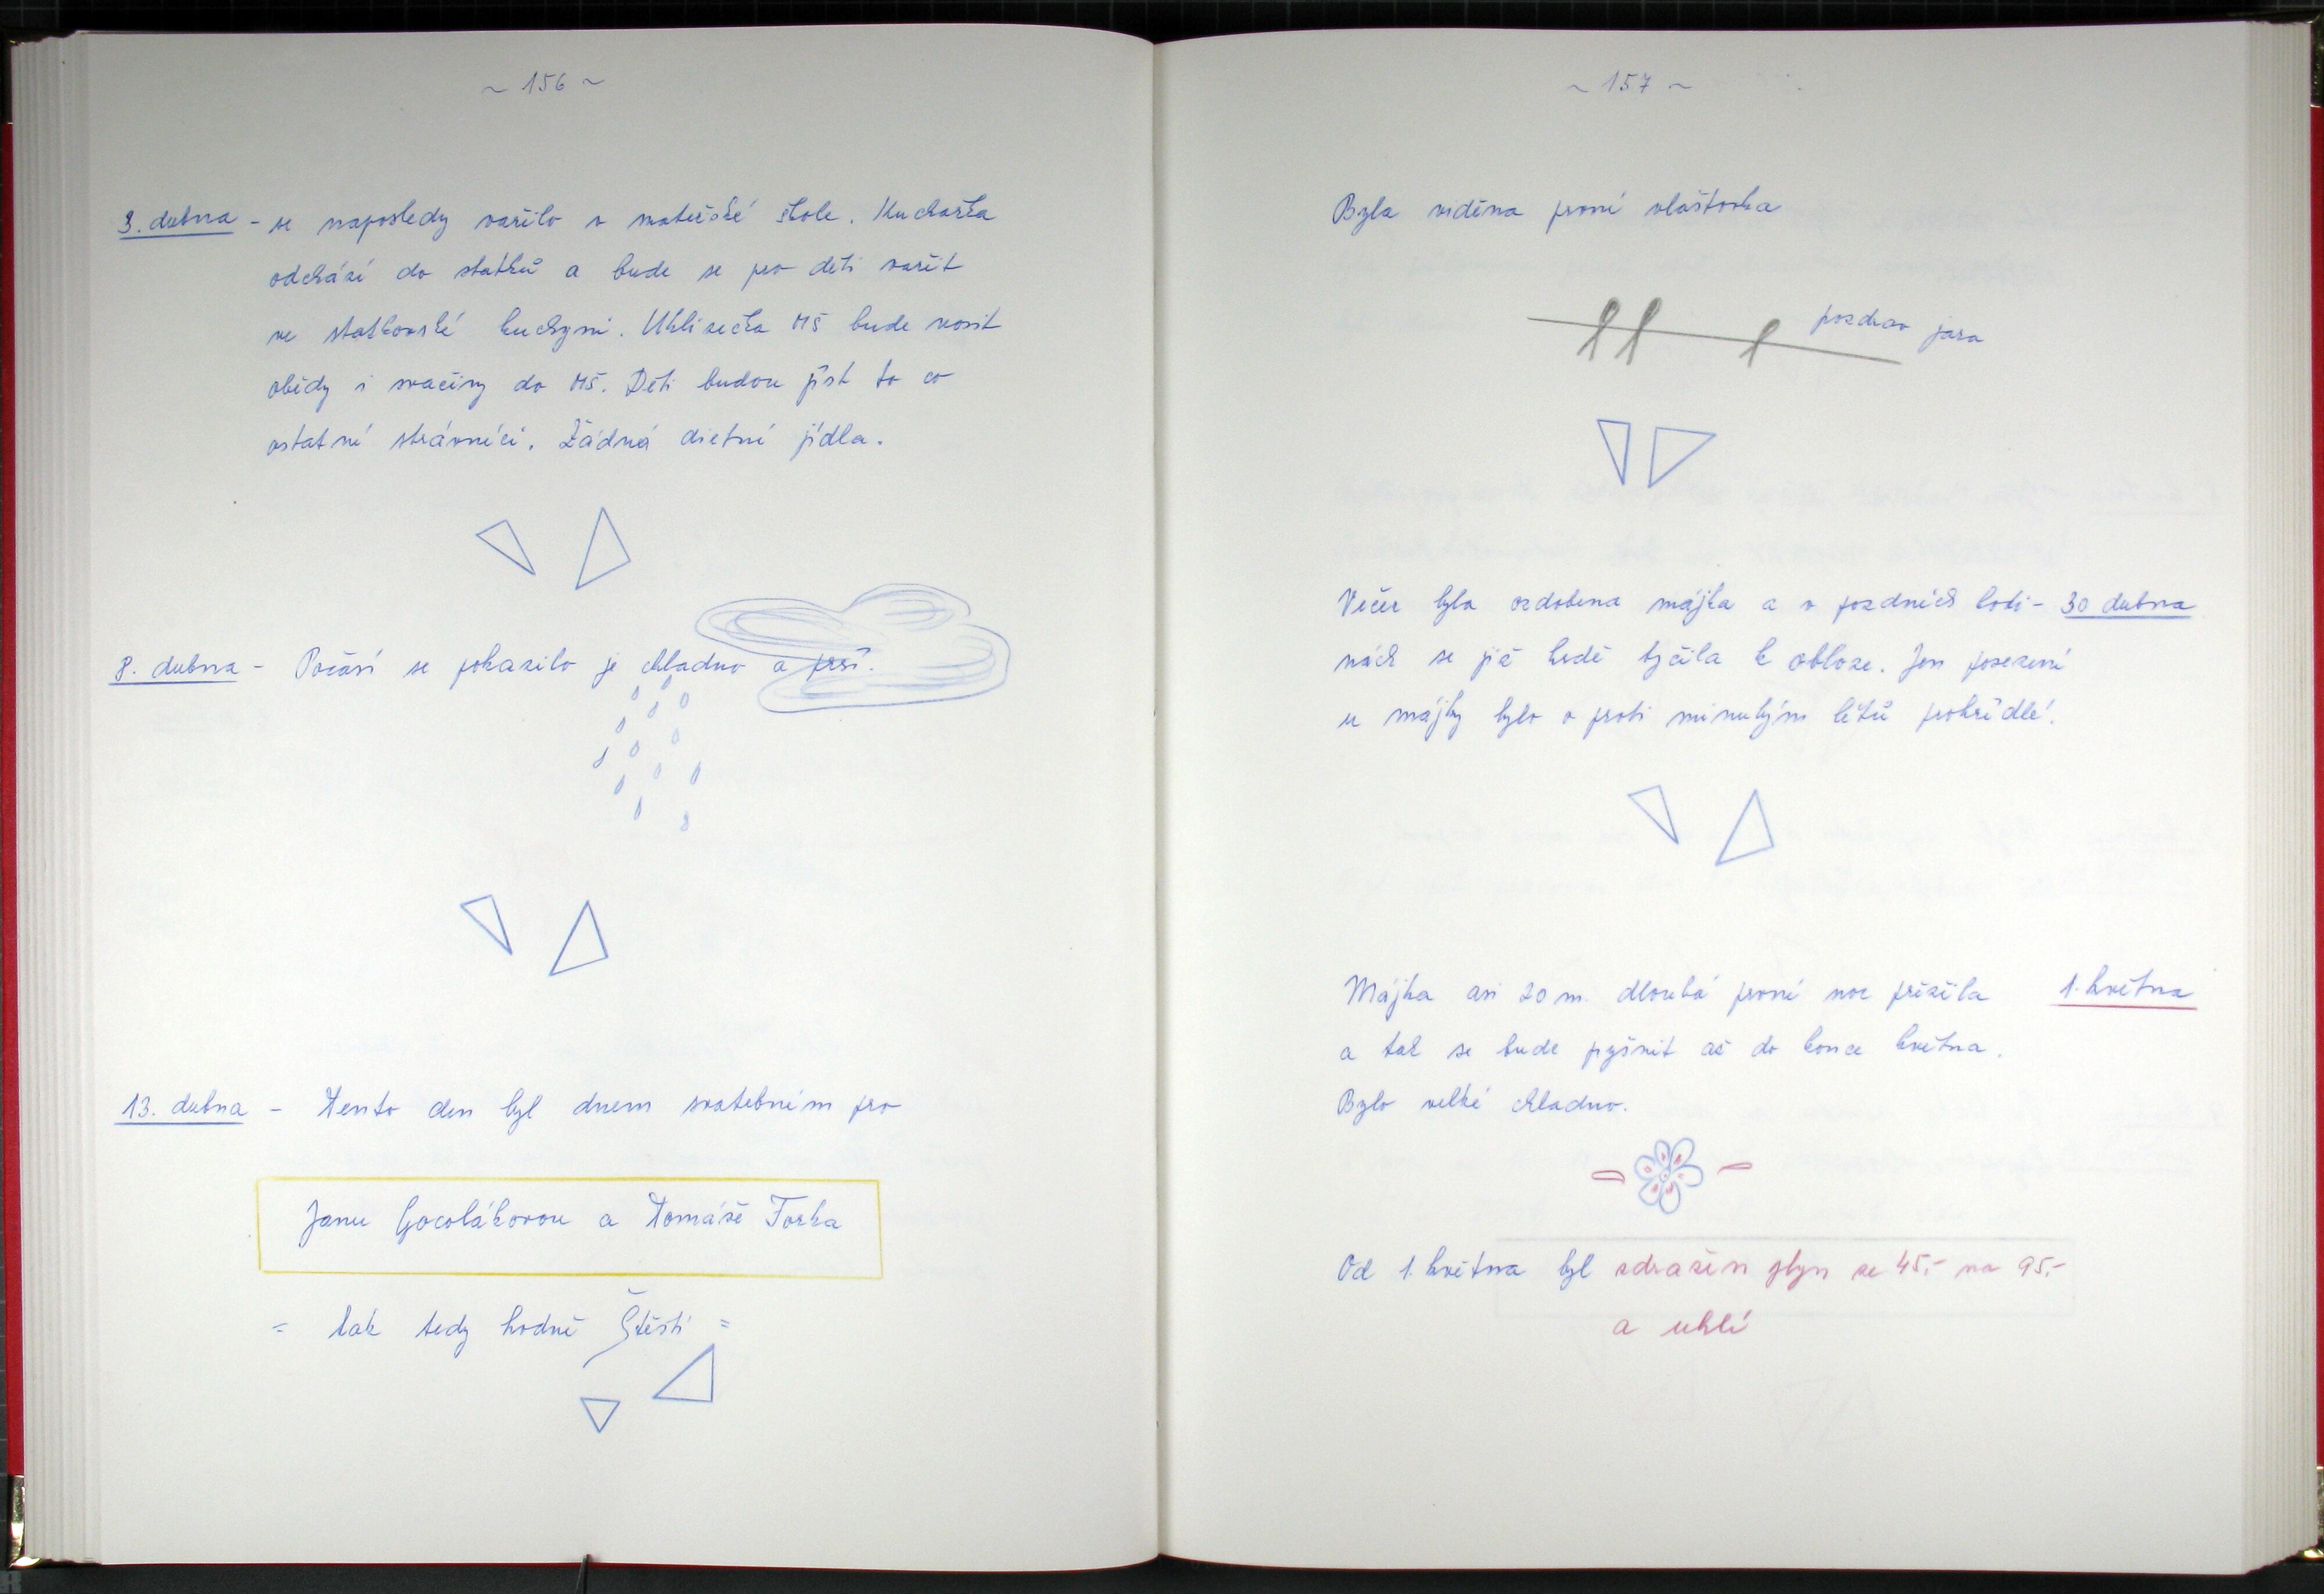 ~ 156 ~
3. dubna - se naposledy vařilo v mateřské škole. Kuchařka
odchází do statků a bude se pro děti vařit
ve statkovské kuchyni. Uklízečka MŠ bude nosit
obědy i svačiny do MŠ. Děti budou jíst to co
ostatní strávníci. Žádná dietní jídla.
8. dubna - Počasí se pokazilo je chladno a prší.
13. dubna - Tento den byl dnem svatebním pro
Janu Gocolákovou a Tomáše Forka
= tak tedy hodně Štěstí =
~ 157 ~
Byla viděna první vlaštovka
pozdrav jara
Večer byla ozdobena májka a v pozdních hodi- 30 dubna
nách se již hrdě tyčila k obloze. Jen posezení
u májky bylo o proti minulým létů prokřídlé.
Májka asi 20 m. dlouhá první noc přežila 1. května
a tak se bude pyšnit až do konce května.
Bylo velké chladno.
Od 1. května byl zdražen plyn ze 45,- na 95,-
a uhlí